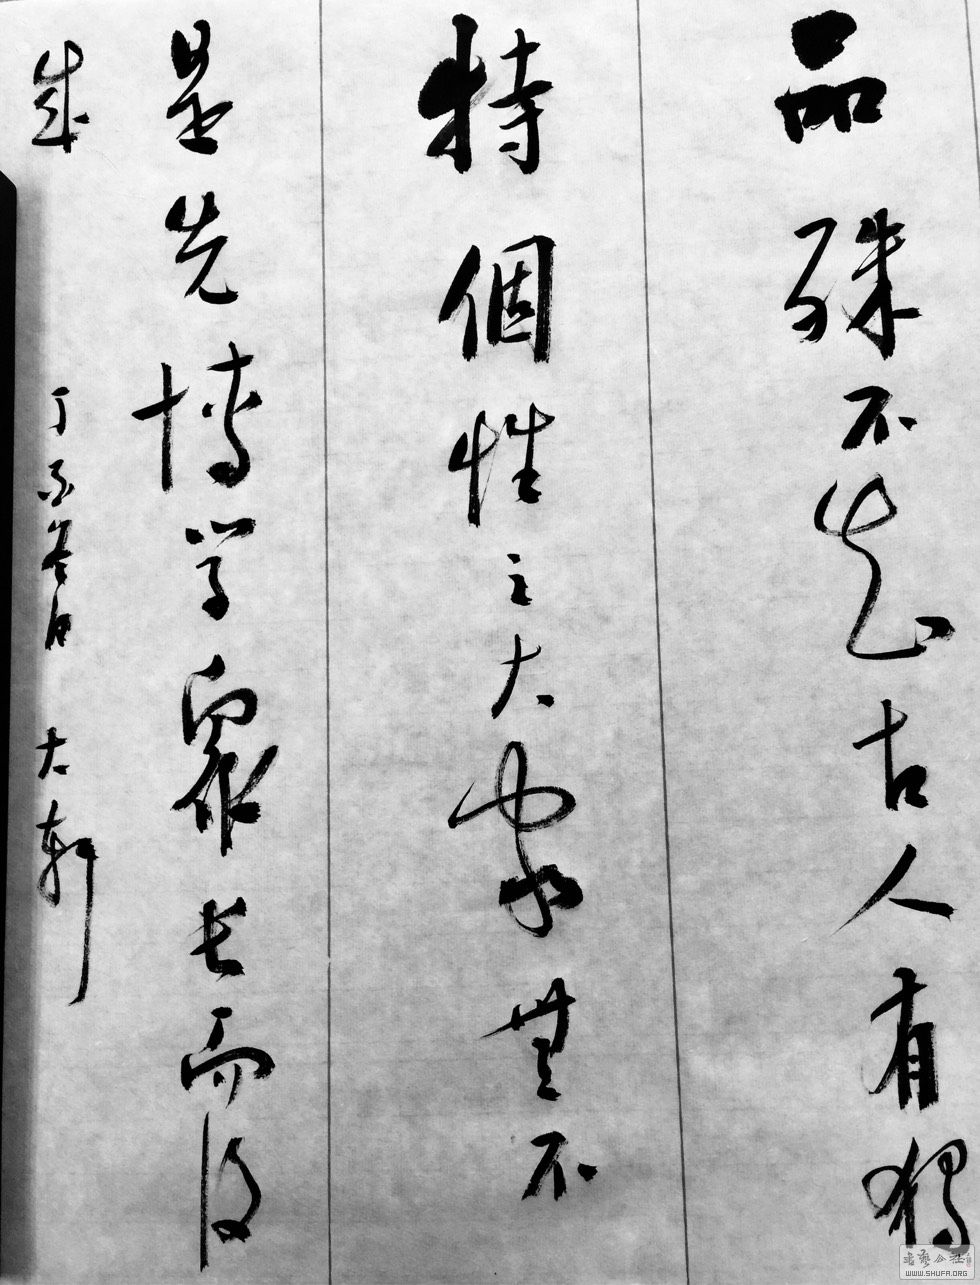 品殊不知古人有獨
特個性之大家無不
是先博學眾長而後
成
丁酉春月 大軒
書藝公社
WWW.SHUFA.ORG